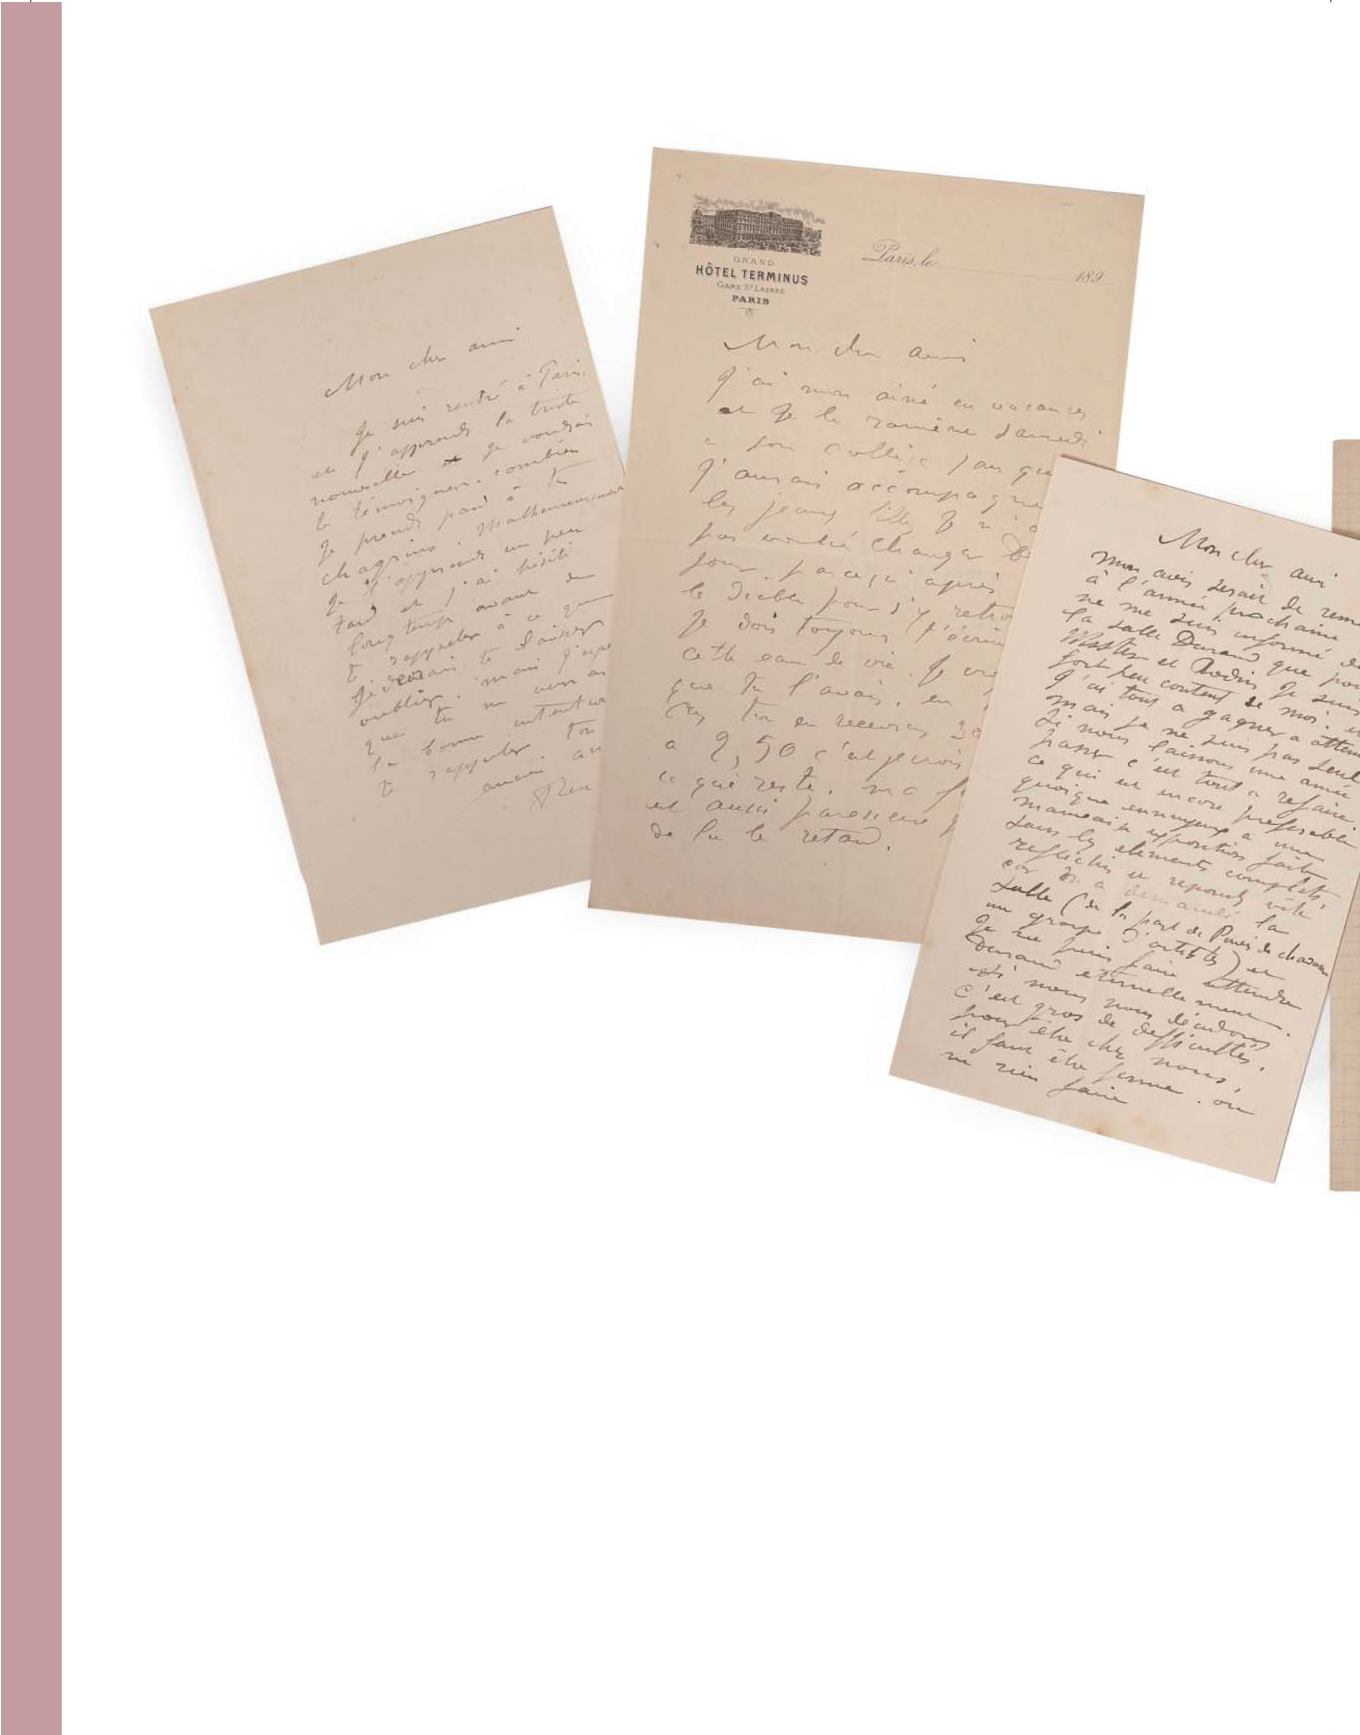 Mon cher ami
Je suis rentré à Paris
et j'apprends la triste
nouvelle Je voudrais
te témoigner combien
je prends part à ton
chagrin. Malheureusement
je l'apprends un peu
tard et j'ai hésité
longtemps avant de
te rappeler à ce que
je devrais te laisser
oublier. mais j'espe
que tu ne verras
la bonne intention
te rappeler. Ton
ancien am
GRAND
HÔTEL TERMINUS
GARE ST LAZARE
PARIS
Paris, le 189
Mon cher ami
J'ai mon ainé en vacances
et je le ramène samedi
a son collège sans qu
j'aurais accompagné
les jeunes je n'a
pas voulu changer
jour parcequ'après
le diable pour s'y retro
Je dois toujours t'écrire
cette eau de vie. Je
que tu l'avais, en
tu en recevras 30
a 2,50 c'est je crois
ce qui reste. ma f
est aussi paresseuse
de là le retard.
Mon cher ami
mon avis serait de reme
à l'année prochaine
ne me suis informé de
la salle Durand que pour
Wisstler et Rodin Je suis
fort peu content de moi.
J'ai tout a gagner a atten
mais je ne suis pas seul
Si nous laissons une année
passer c'est tout a refaire.
ce qui est encore preferable
quoique ennuyeux a une
mauvaise exposition faite
sans les elements complets.
reflechis et reponds vite
car on a demandé la
salle (de la part de Puvis de chavannes
un groupe d'artistes) et
Je ne puis faire attendre
Durand eternellement.
Si nous nous décidons
c'est gros de difficultés.
pour être chez nous,
il faut être ferme. ou
ne rien faire